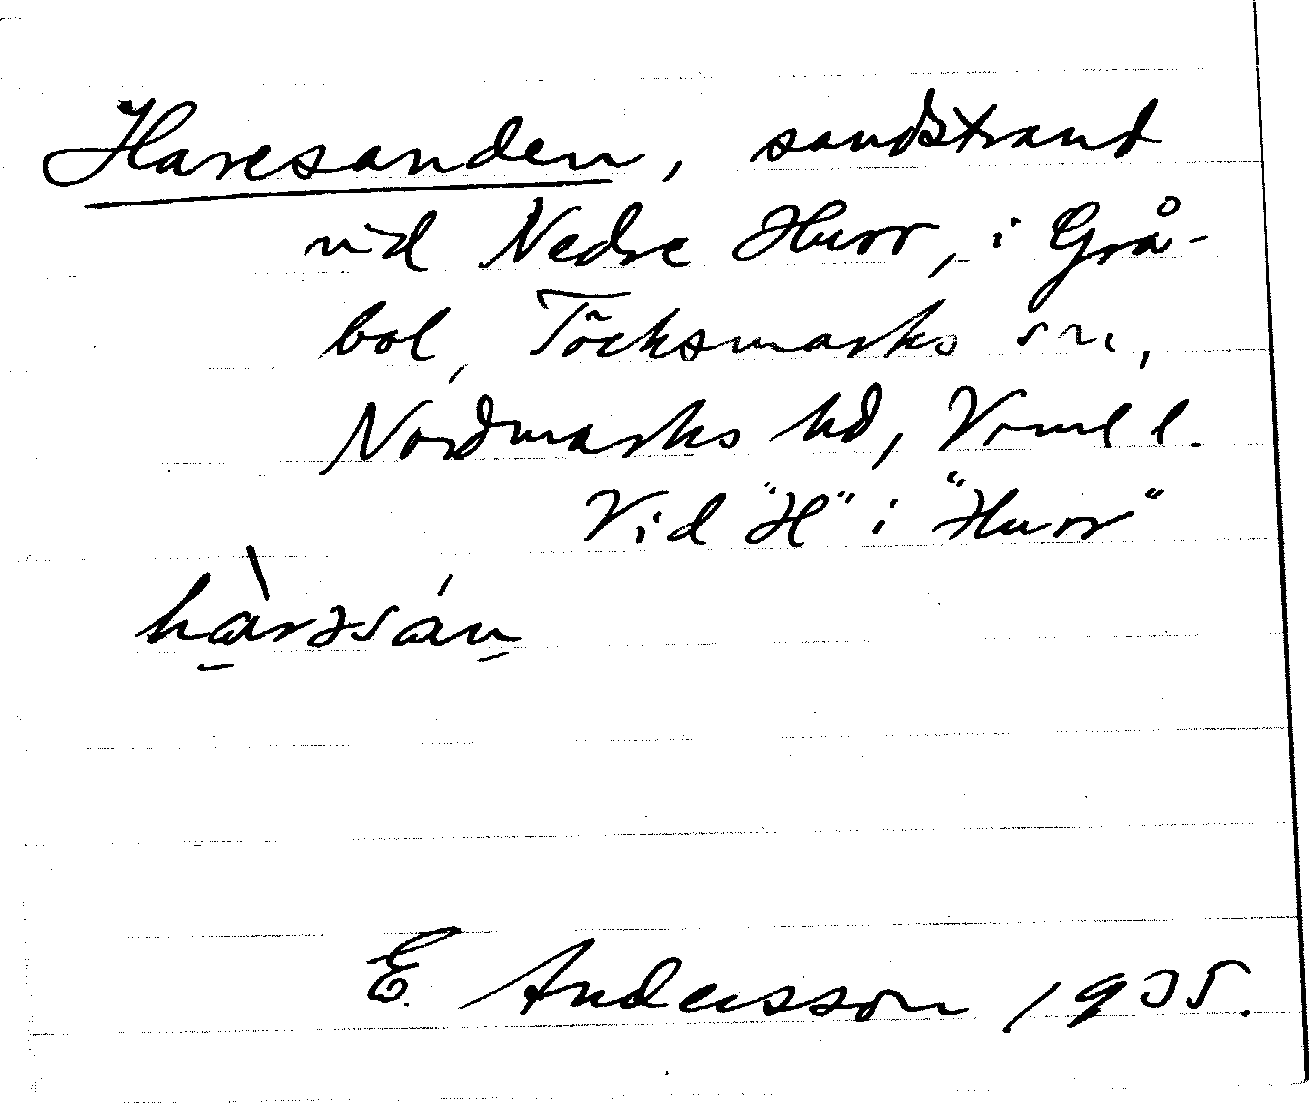 Haresanden, sandstrand
vid Nedre Hurr, i Grå-
bol, Töcksmarks sn,
Nordmarks hd, Vrml l.
Vid "H" i "Hurr"
hàrəsán
E. Andersson 1935.